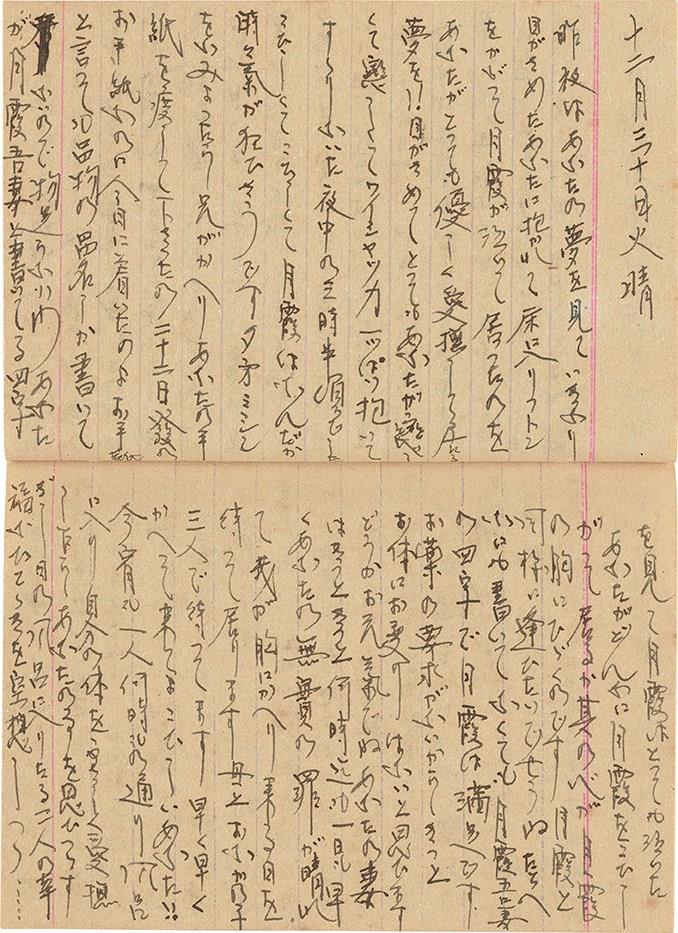 十二月三十日火晴
昨夜はあなたの夢を見ていきなり
目がさめたあなたに抱かれて床に入りフトン
をかぶって月霞が泣いて居ったのを
あなたがとっても優しく愛撫して居る
夢を!!目がさめてとてもあなたが
くて恋しくてワイシャツ力一っぱい抱いて
すゝりないた夜中の三時半頃でした
こひしくてこひしくて月霞はなんだか
時々気が狂ひさうです夕方ミシン
をふみよったら兄がかへりあなたの手
紙を渡して下さったの二十二日発の
お手紙なのに今日に着いたのよお手
と言っても品物の品名しか書いて
ないので物足りないわ あなた
が月霞吾妻と書いてる四字
を見て月霞はとっても泣いた
あなたがどんなに月霞をこひし
がって居るか其の心が月霞
の胸にひゞくのです 月霞と
可粋に逢ひたいでせうね たとへ
なにも書いてなくても 月霞吾妻
の四字で月霞は満足です
お薬の要求がないからきっと
お体にお変り はないと思ひます
どうかお元気でねあなたの妻
はきっときっと何時迄も一日も早
くあなたの無實の罪が晴れ
て我が胸にかへり来る日を
待って居ります 母とおなかの子
三人で待ってます 早く早く
かへって来てよこひしいあなた!!
今宵も一人何時もの通り風呂
に入り自分の体をやさしく愛撫
しながらあなたの事を思ひつゝす
ぎし日の風呂に入りたる二人の幸
福なひとゝきを空想しつゝ……